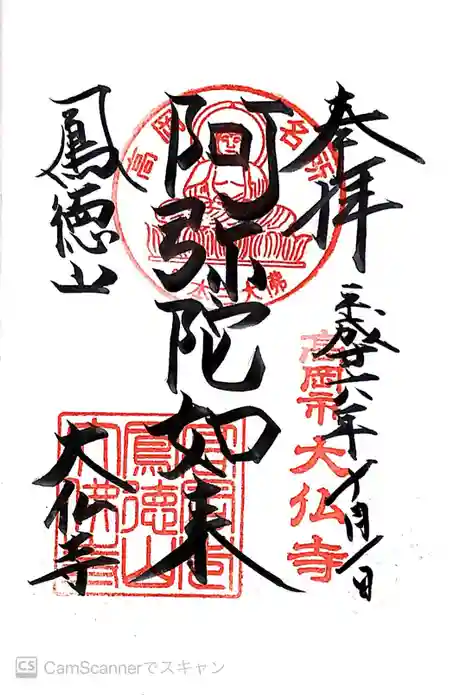 奉拝
平成廿六年十月一日
高岡市大仏寺
高岡名所
大佛
阿弥陀如来
鳳徳山
大仏寺
鳳徳山
CS CamScannerでスキャン